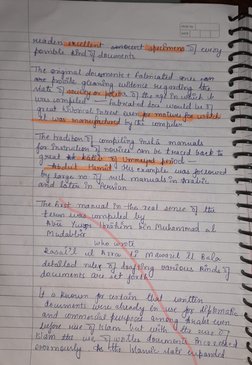 readers excellent specimens of every
possible kind of documents
The original documents & fabricated ones can
also provide gleaming evidence regarding the
state of society or politics of the age in which it
was compiled — fabricated too would be of
great historical interest even for motives for which
it was manufactured by the compiler.
The tradition of compiling Insha manuals
for instruction of novices can be traced back to
great katib of Ummayad period —
Abdul Hamid. His example was followed
by large no of such manuals in Arabic
and later in Persian
The first manual in the real sense of the
term was compiled by
Abu Yusuf Ibrahim bin Muhammad al
Mudabbir
Who wrote
Risail ul Azra fi Mawazil il Bala
detailed rules of drafting various kinds of
documents are set forth
It is known for certain that written
documents were already in use for diplomatic
and commercial purposes among Arabs even
before rise of Islam but with the rise of
Islam the use of written documents increased
enormously. As the Islamic state expanded